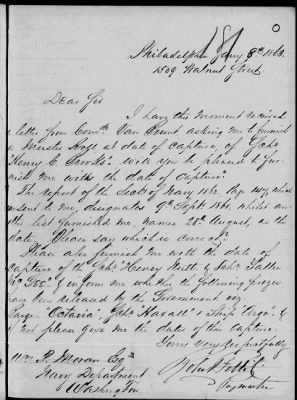 Philadelphia Jany 8th 1863.
1509 Walnut Street
Dear Sir
I have this moment received
a letter from Comdr. Van Brunt asking me to furnish
a Muster Roll at date of capture, of Schr
"Henry C. Brooks" will you be pleased to fur-
nish me with the date of capture?
The report of the Secty of Navy 1862,
sent to me, designates 9th Septr. 1861, whilst
the list furnished me, names 28th August, as the
date. Please say which is correct?
Please also furnish me with the date of
capture of the Schr Henry Nutt & Schr
& inform me whether the following prizes
may been released by the Government viz
Barge "Octavia" Schr "Havall" & Ship "Argo". &
if not please give me the date of this Capture.
Yours respectfully
John
Paymaster
Wm P. Moran Esqr
Navy Department
Washington